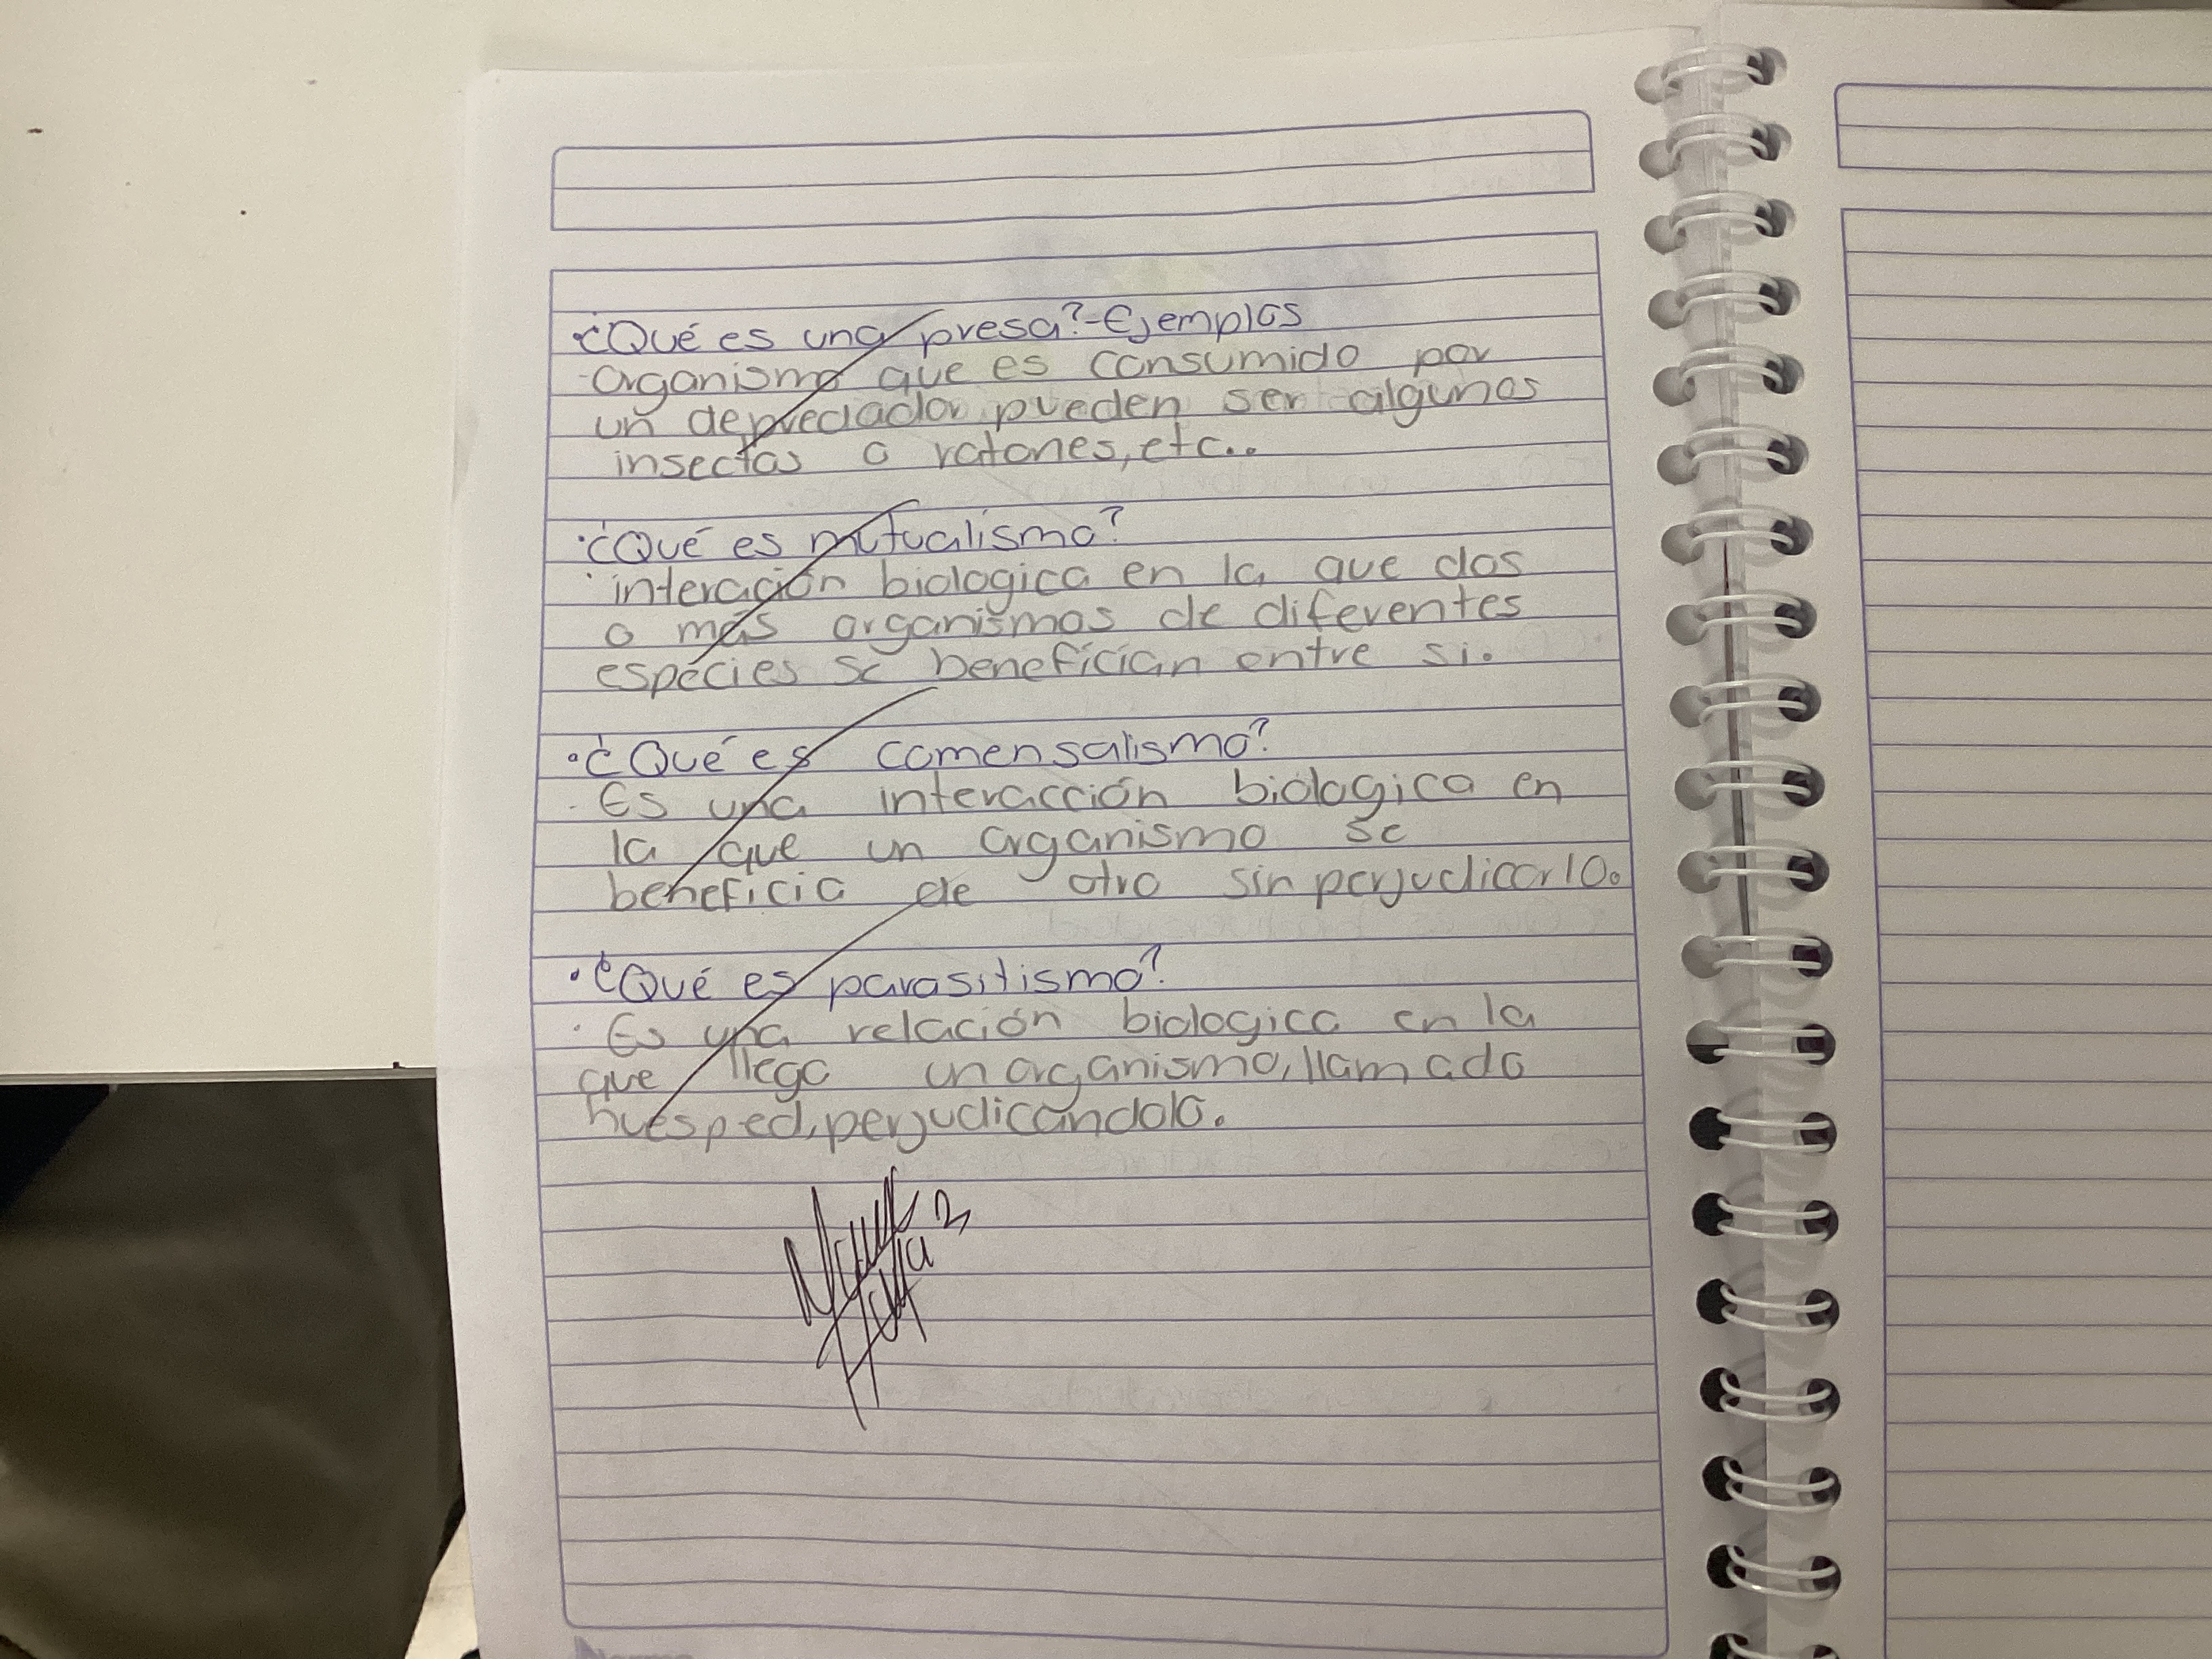 ¿Qué es una presa?-Ejemplos
-Organismo que es consumido por
un depredador pueden ser algunos
insectos o ratones, etc..
·¿Qué es mutualismo?
·interación biologica en la que dos
o más organismos de diferentes
especies se benefician entre si.
·¿Qué es comensalismo?
·Es una interacción biologica en
la que un organismo se
beneficia de otro sin perjudicarlo.
·¿Qué es parasitismo?
·Es una relación biologica en la
que llega un organismo, llamado
huesped, perjudicándolo.